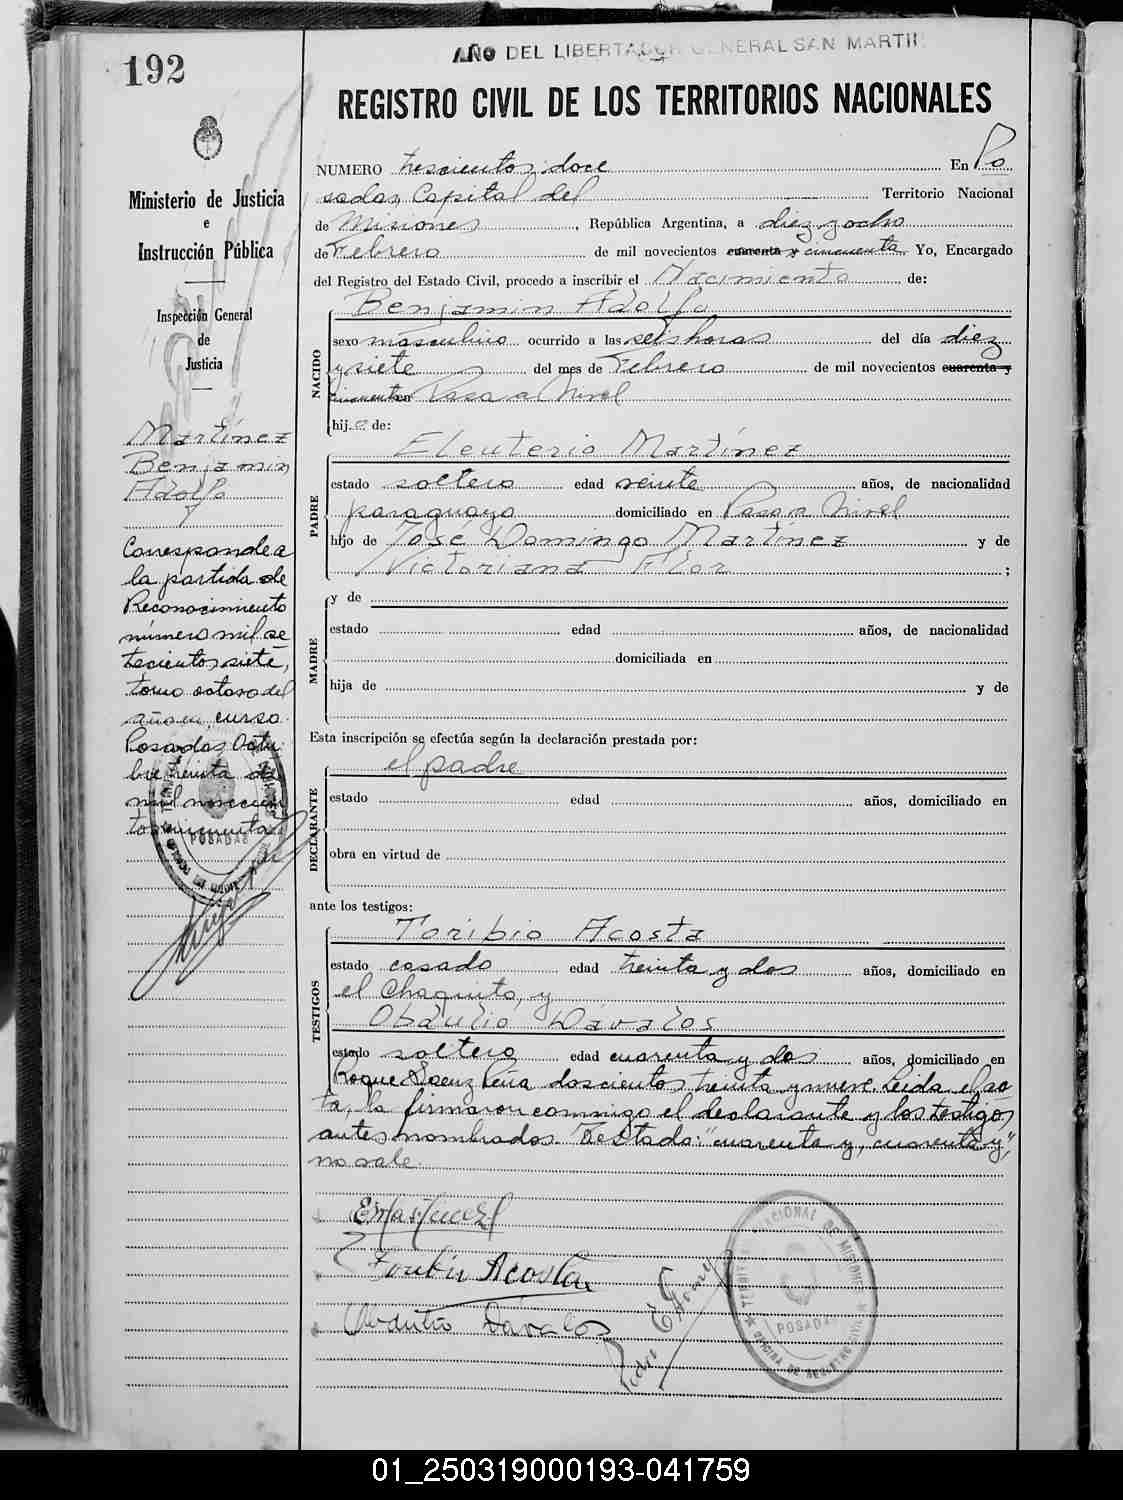 192
AÑO DEL LIBERTADOR GENERAL SAN MARTIN
REGISTRO CIVIL DE LOS TERRITORIOS NACIONALES
Ministerio de Justicia
e
Instrucción Pública
Inspección General
de
Justicia
Martínez
Benjamin
Adolfo
Corresponde a
la partida de
Reconocimiento
número mil se
tecientos siete,
tomo octavo del
año en curso.
Posadas, Octu
bre treinta de
mil novecien
tos cincuenta
POSADAS
NUMERO trescientos doce En Po
sadas, Capital del Territorio Nacional
de Misiones, República Argentina, a diez y ocho
de Febrero de mil novecientos cuarenta y cincuenta. Yo, Encargado
del Registro del Estado Civil, procedo a inscribir el Nacimiento de:
NACIDO
Benjamin Adolfo
sexo masculino ocurrido a las seis horas del día diez
y siete del mes de Febrero de mil novecientos cuarenta y
cincuenta en Paso a Nivel
hijo de:
PADRE
Eleuterio Martínez
estado soltero edad veinte años, de nacionalidad
paraguayo domiciliado en Paso a Nivel
hijo de José Domingo Martínez y de
Victoriana Flor ;
MADRE
y de
estado edad años, de nacionalidad
domiciliada en
hija de y de
Esta inscripción se efectúa según la declaración prestada por:
DECLARANTE
el padre
estado edad años, domiciliado en
obra en virtud de
ante los testigos:
TESTIGOS
Toribio Acosta
estado casado edad treinta y dos años, domiciliado en
el Chaquito, y
Obdulio Dávalos
estado soltero edad cuarenta y dos años, domiciliado en
Roque Saenz Peña doscientos treinta y nueve. Leida el ac
ta, la firmaron conmigo el declarante y los testigos
antes nombrados. Testado: "cuarenta y, cuarenta y",
no vale.
EMartinez
Toribio Acosta
Obdulio Dávalos
TERRITORIO NACIONAL DE MISIONES
POSADAS
OFICINA DE REGISTRO CIVIL
01_250319000193-041759